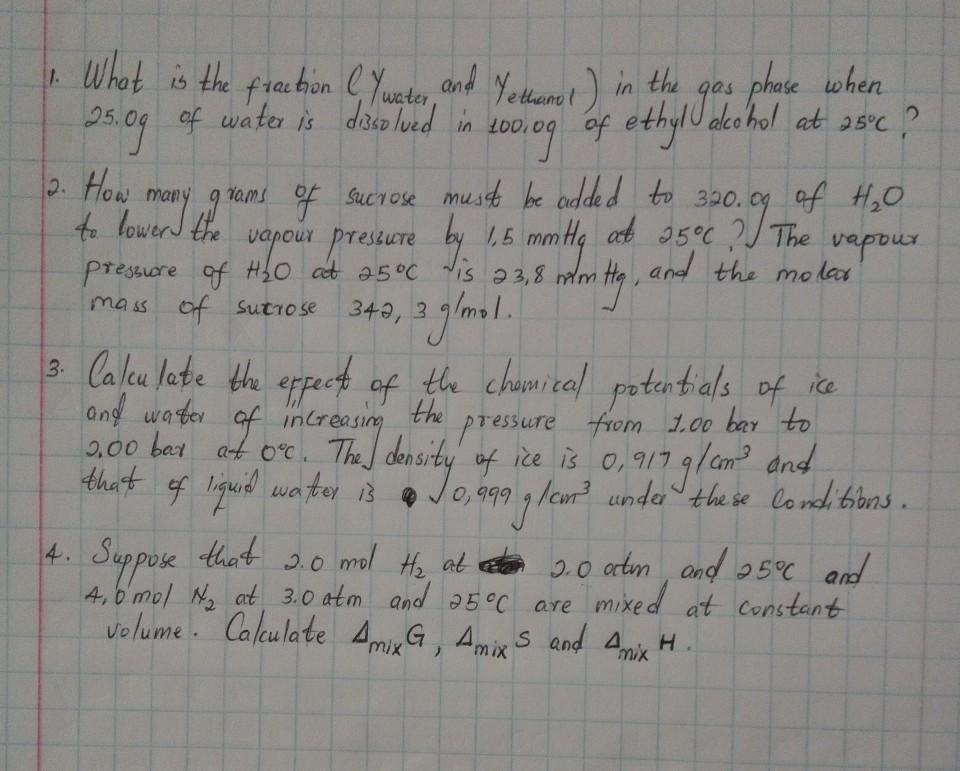 1. What is the fraction (Ywater and Yethanol) in the gas phase when
25.0g of water is dissolved in 100,0g of ethyl alcohol at 25°C?
2. How many grams of sucrose must be added to 320.0g of H₂O
to lower the vapour pressure by 1,5 mmHg at 25°C? The vapour
pressure of H₂O at 25°C is 23,8 mmHg, and the molar
mass of sucrose 342,3 g/mol.
3. Calculate the effect of the chemical potentials of ice
and water of increasing the pressure from 1.00 bar to
2,00 bar at 0°C. The density of ice is 0,917 g/cm³ and
that of liquid water is 0,999 g/cm³ under these conditions.
4. Suppose that 2.0 mol H₂ at 2.0 atm and 25°C and
4,0 mol N₂ at 3.0 atm and 25°C are mixed at constant
volume. Calculate ΔmixG, ΔmixS and ΔmixH.